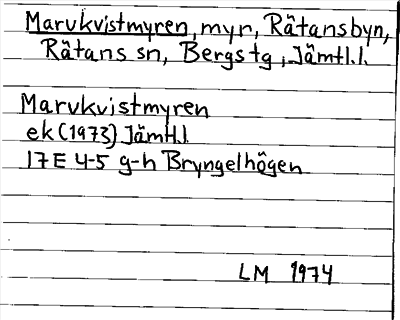 Marvkvistmyren, myr, Rätansbyn,
Rätans sn, Bergs tg, Jämtl.l.
Marvkvistmyren
ek (1973) Jämtl.l
17E 4-5 g-h Bryngelhögen
LM 1974